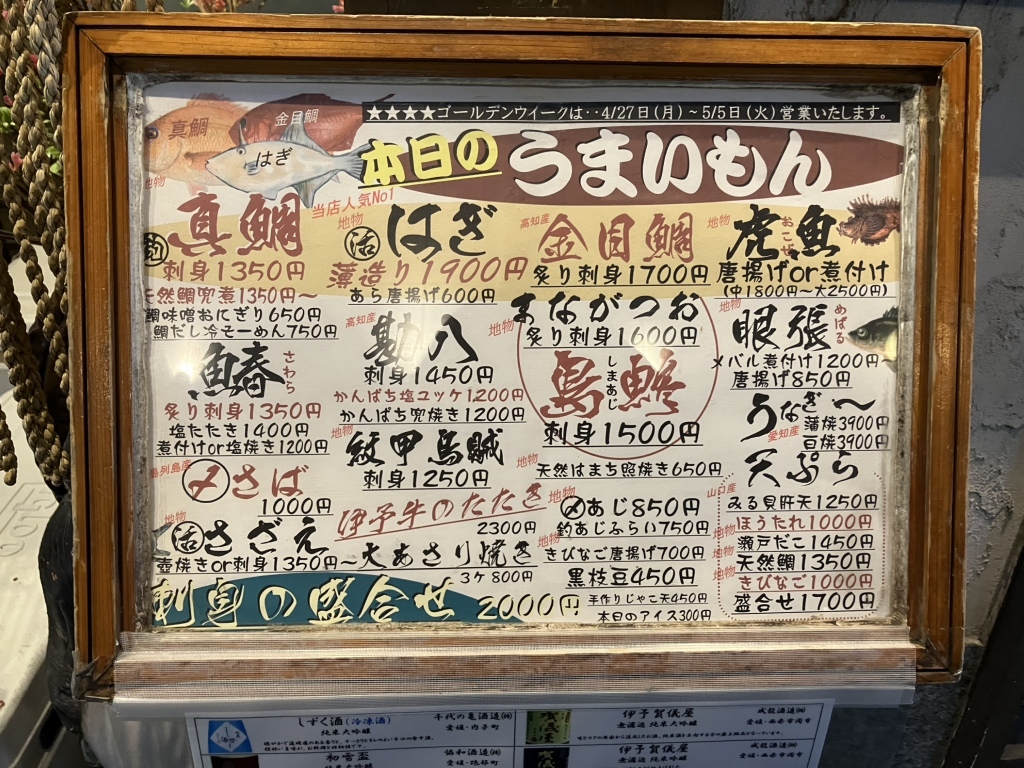 ★★★★ゴールデンウィークは‥4/27日(月)～5/5日(火)営業いたします。
真鯛
金目鯛
はぎ
本日の うまいもん
地物
当店人気No1
釣 真鯛
刺身1350円
天然鯛兜煮1350円〜
鯛味噌おにぎり650円
鯛だし冷そーめん750円
地物
活 はぎ
薄造り1900円
あら唐揚げ600円
高知産
金目鯛
炙り刺身1700円
地物
虎魚 おこぜ
唐揚げor煮付け
(中1800円〜大2500円)
鰆 さわら
炙り刺身1350円
塩たたき1400円
煮付けor塩焼き1200円
高知産
勘八
刺身1450円
かんぱち塩ユッケ1200円
かんぱち兜焼き1200円
地物
まながつお
炙り刺身1600円
島鯵 しまあじ
刺身1500円
地物
眼張 めばる
メバル煮付け1200円
唐揚げ850円
うなぎ〜
愛知産
蒲焼3900円
白焼3900円
列島産
〆さば
1000円
地物
紋甲烏賊
刺身1250円
伊予牛のたたき
2300円
地物
天然はまち照焼き650円
地物
〆あじ850円
釣あじふらい750円
地物
きびなご唐揚げ700円
黒枝豆450円
手作りじゃこ天450円
本日のアイス300円
天ぷら
山口産
みる貝肝天1250円
地物
ほうたれ1000円
地物
瀬戸だこ1450円
地物
天然鯛1350円
地物
きびなご1000円
盛合せ1700円
地物
活 さざえ
壺焼きor刺身1350円〜
大あさり焼き
3ケ800円
刺身の盛合せ 2000円
しずく酒(冷凍酒)
純米大吟醸
千代の亀酒造㈱
愛媛・内子町
伊予賀儀屋
無濾過 純米大吟醸
成龍酒造㈱
愛媛・西条市周布
初雪盃
純米大吟醸
協和酒造㈱
愛媛・砥部町
伊予賀儀屋
無濾過 純米吟醸
成龍酒造㈱
愛媛・西条市周布